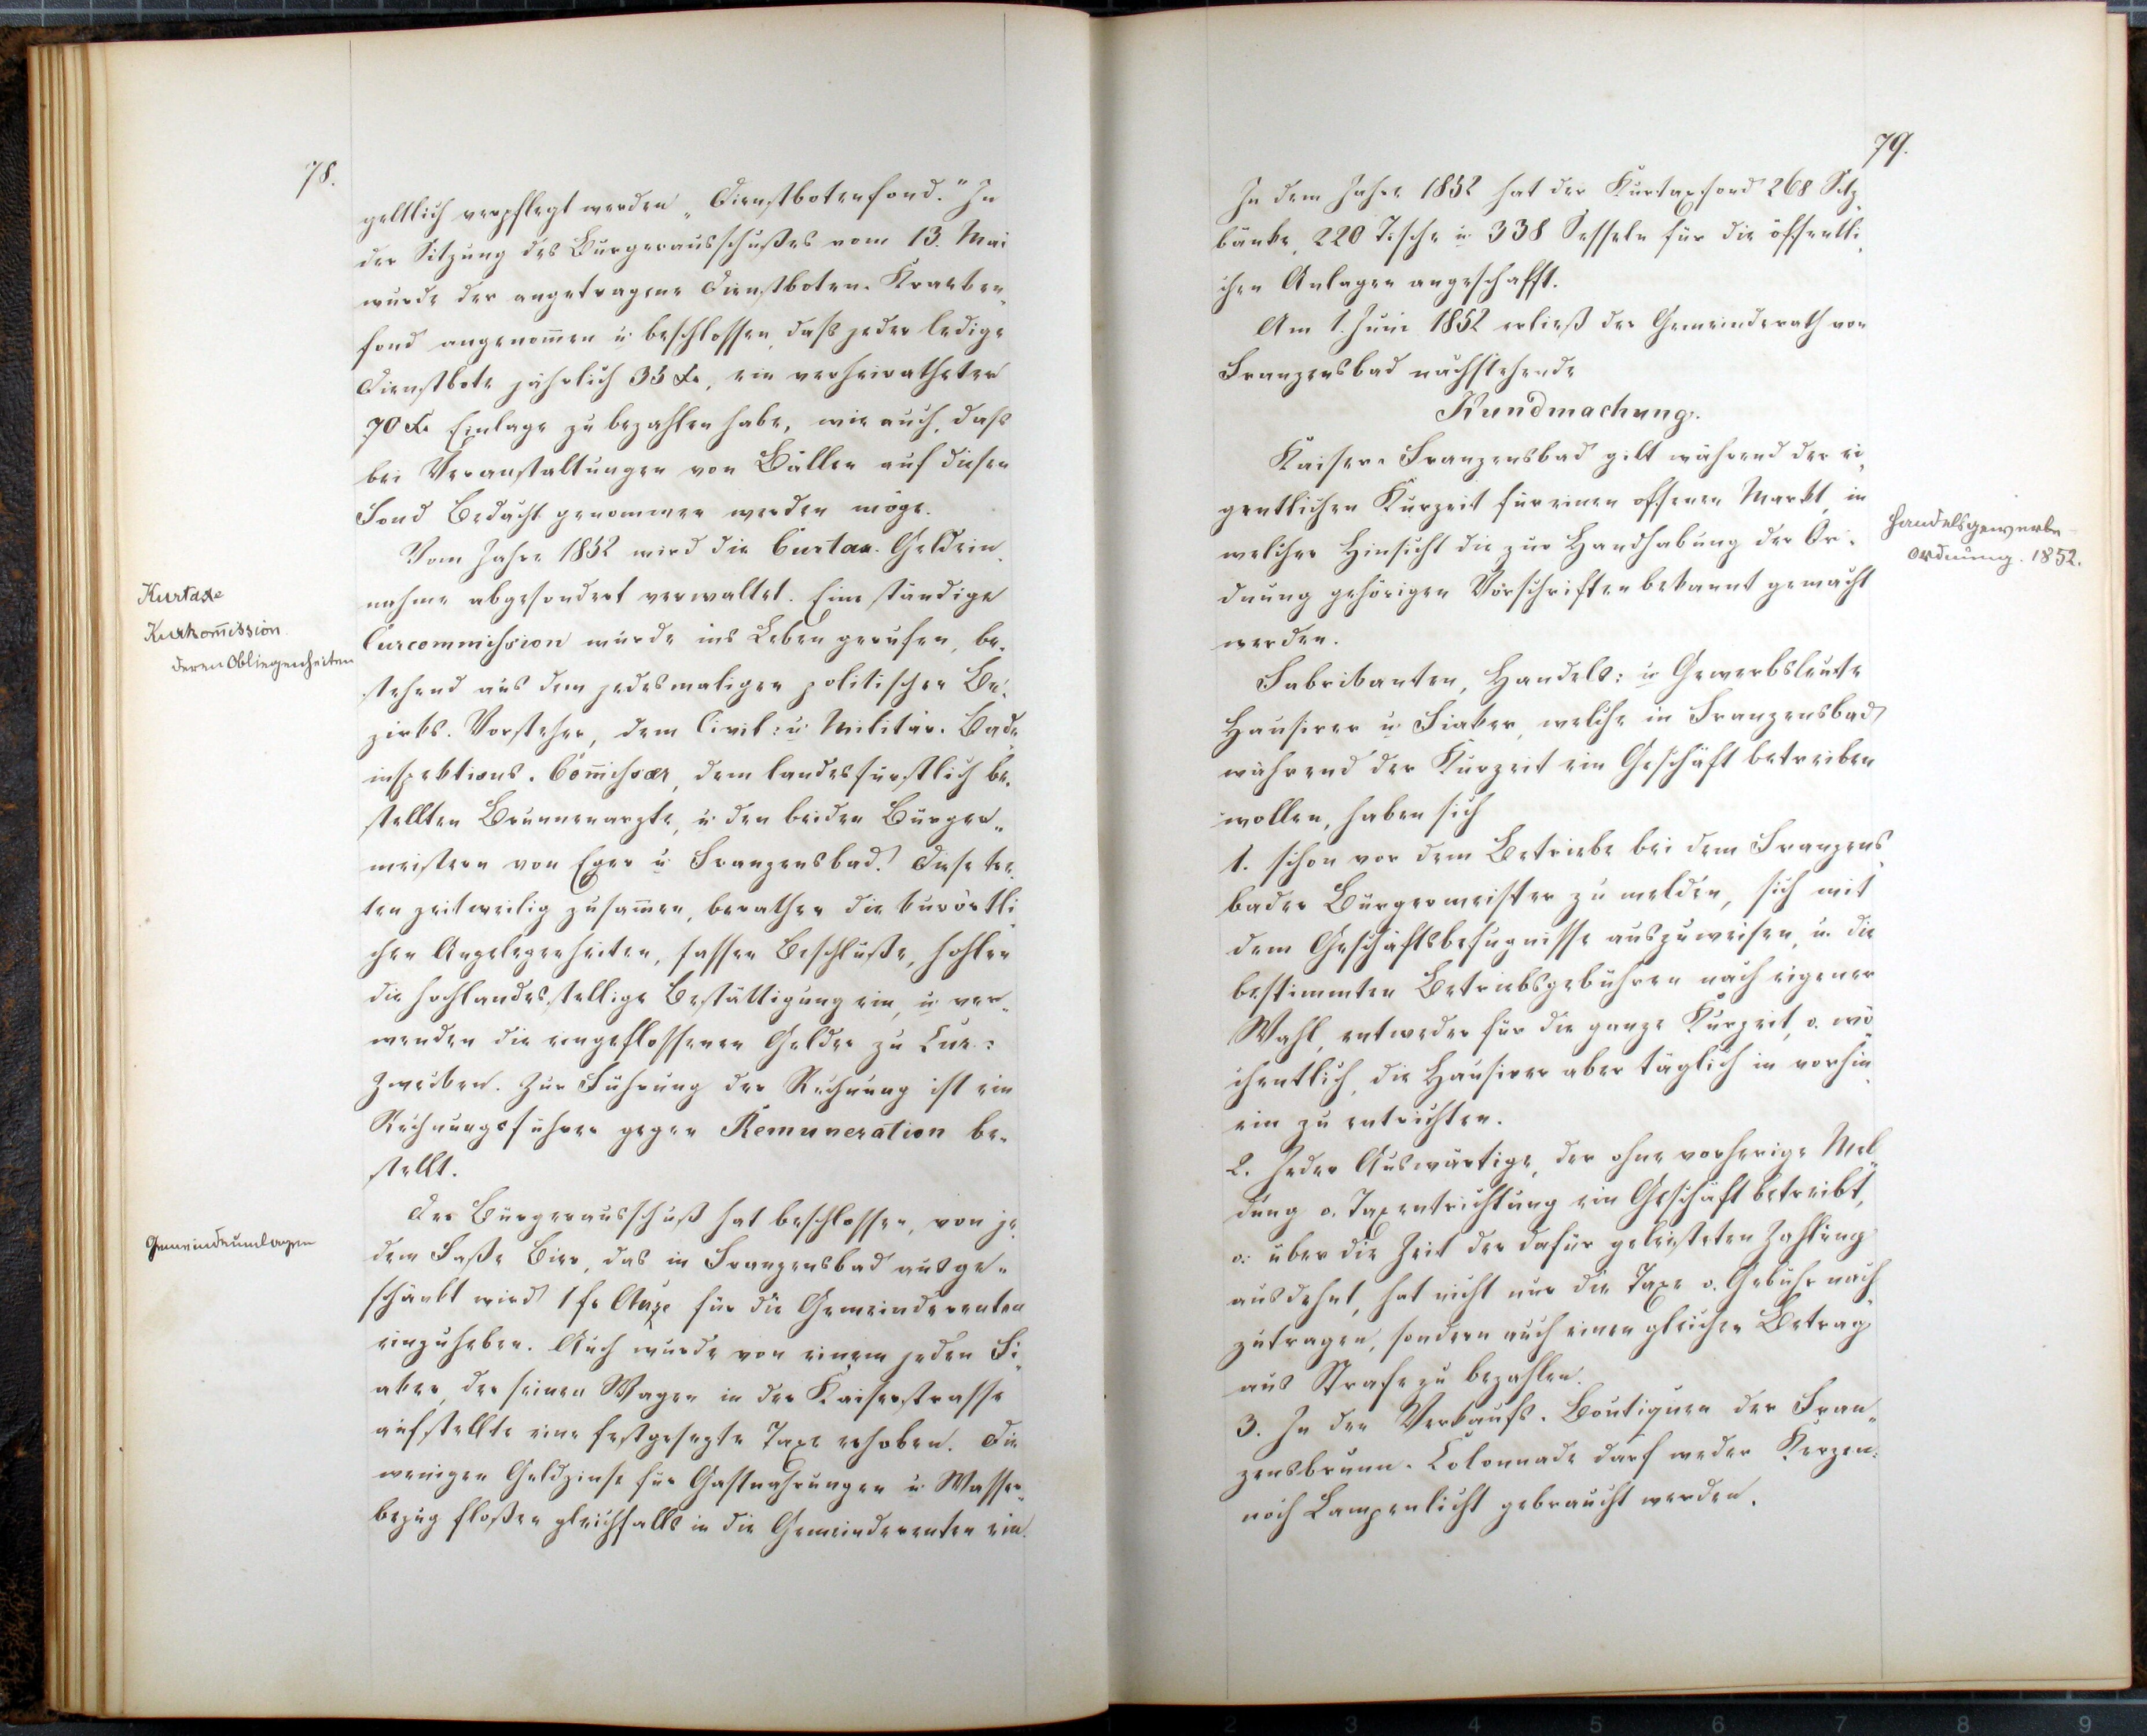 78.
geltlich verpflegt werden „Dienstbotenfond.“ In
der Sitzung des Bürgerausschußes vom 13. Mai
wurde der angetragene Dienstboten-Kranken„
fond angenom̄en u beschlossen, daß jeder ledige
Dienstbote jährlich 35 Xr, ein verheiratheter
70 Xr Einlage zu bezahlen habe, wie auch, daß
bei Veranstaltungen von Bällen auf diesen
Fond Bedacht genommen werden möge.
Vom Jahre 1852 wird die Curtax-Geldein„
nahme abgesondert verwaltet. Eine ständige
Curcommission wurde ins Leben gerufen, be„
stehend aus dem jedesmaligen politischen Be„
zirks-Vorsteher, dem Civil: u Militär-Bade„
inspektions-Com̄issär, dem landesfürstlich be„
stellten Brunnenarzte, u den beiden Bürger„
meistern von Eger u Franzensbad. Diese tre„
ten zeitweilig zusam̄en, berathen die kurörtli„
chen Angelegenheiten, fassen Beschlüße, hohlen
die hochlandesstellige Bestättigung ein, u ver„
wenden die eingeflossenen Gelder zu Cur:
zwecken. Zur Führung der Rechnung ist ein
Rechnungsführer gegen Remuneration be„
stellt.
Der Bürgerausschuß hat beschlossen, von je„
dem Faße Bier, das in Franzensbad ausge„
schänkt wird 1 fr für die Gemeinderenten
einzuheben. Auch wurde von einem jeden Fi„
aker, der seinen Wagen in der Kaiserstrasse
aufstellte eine festgesezte Taxe erhoben. Die
wenigen Geldzinse für Gastnahrungen u Wasser„
bezug floßen gleichfalls in die Gemeinderenten ein.
Kurtaxe
Kurkom̄ission
deren Obliegenheiten
Gemeindeumlagen
79.
In dem Jahre 1852 hat der Kurtaxfond 268 Sitz„
bänke, 220 Tische u 338 Sesseln für die öffentli„
chen Anlagen angeschafft.
Am 1. Juni 1852 erließ der Gemeinderath von
Franzensbad nachstehende
Kundmachung.
Kaiser-Franzensbad gilt während der ei„
gentlichen Kurzeit für einen offenen Markt, in
welcher Hinsicht die zur Handhabung der Or„
dnung gehörigen Vorschriften bekannt gemacht
werden.
Fabrikanten, Handels: u Gewerbsleute
Hausirer u Fiaker, welche in Franzensbad
während der Kurzeit ein Geschäft betreiben
wollen, haben sich
1. schon vor dem Betriebe bei dem Franzens„
bader Bürgermeister zu melden, sich mit
dem Geschäftsbefugnisse auszuweisen, u. die
bestimmten Betriebsgebühren nach eigener
Wahl, entweder für die ganze Kurzeit, o. wö„
chentlich, die Hausirer aber täglich in vorhin„
ein zu entrichten.
2. Jeder Auswärtige, der ohne vorherige Mel„
dung o. Taxentrichtung ein Geschäft betreibt,
o. über die Zeit der dafür geleisteten Zahlung
ausdehnt, hat nicht nur die Taxe o. Gebühr nach„
zutragen, sondern auch einen gleichen Betrag
aus Strafe zu bezahlen.
3. In den Verkaufs-Boutiquen der Fran„
zensbrunn-Colonnade darf weder Kerzen:
noch Lampenlicht gebraucht werden.
Handelsgewerbe-
ordnung. 1852.
2 3 4 5 6 7 8 9